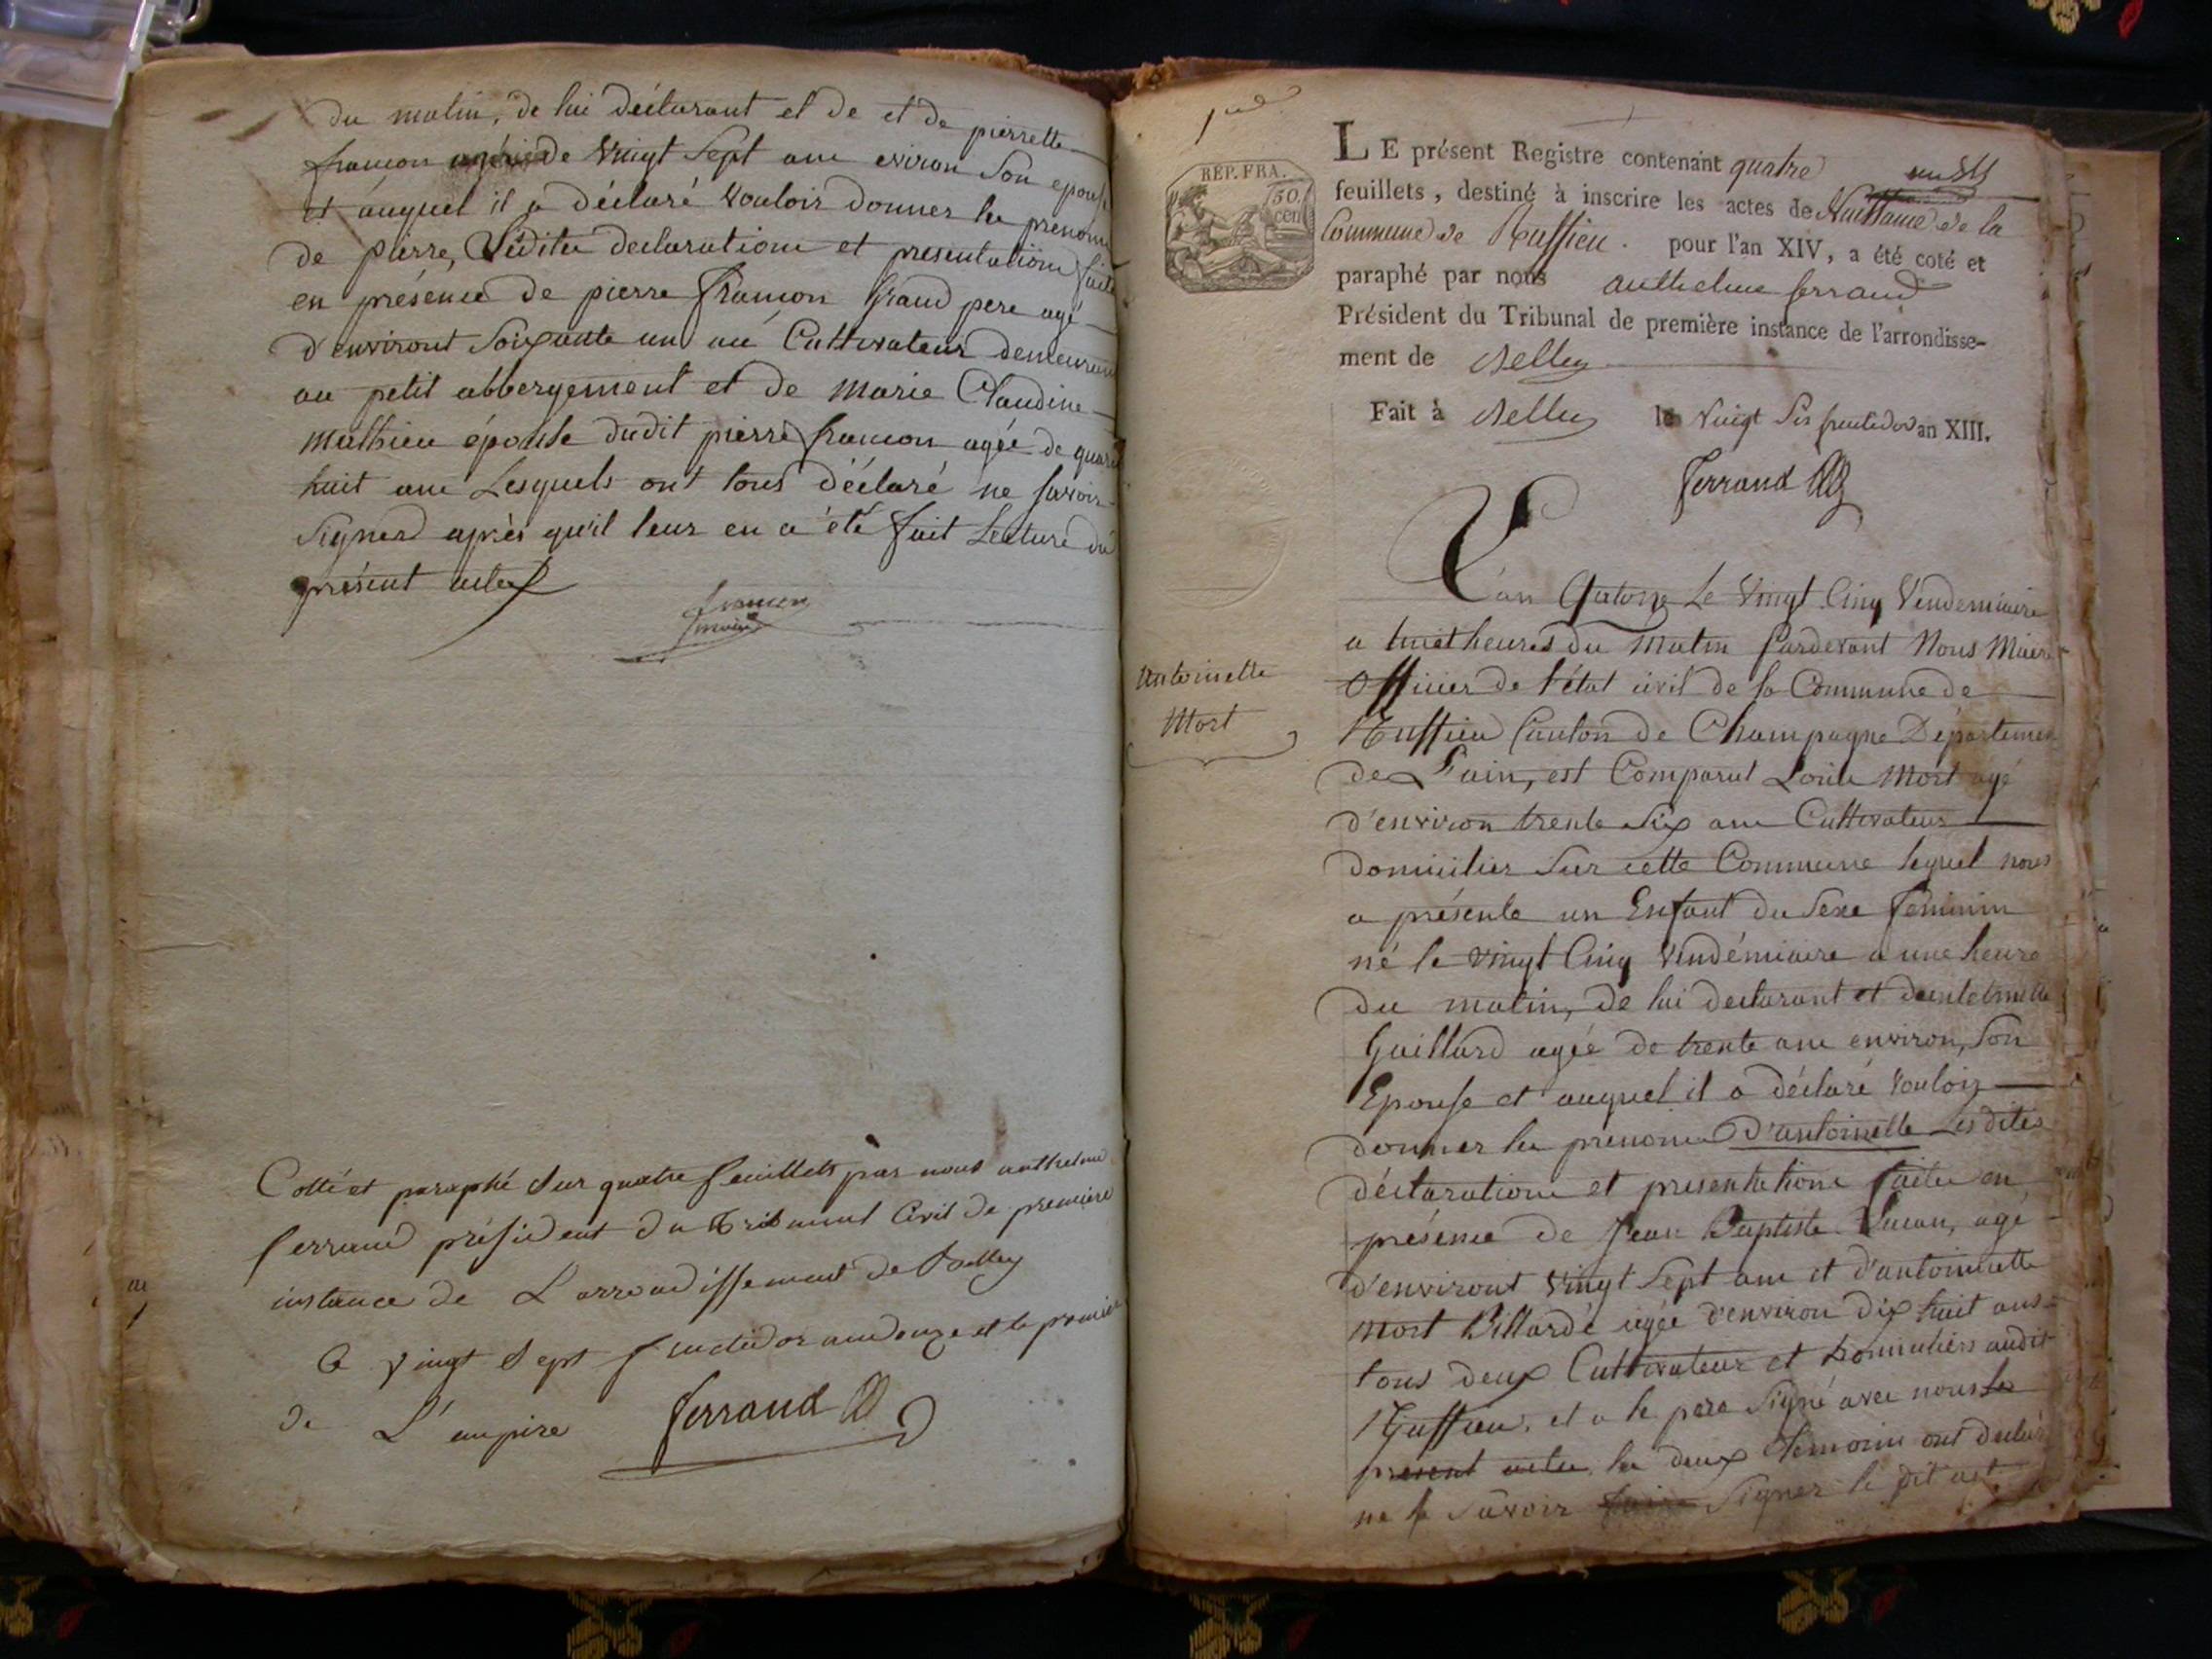 du matin, de lui déclarant et de et de pierrette
francon agée de vingt Sept ans eviron Son epouse
et auquel il a déclaré vouloir donner les prenoms
de pierre, Lédites declarations et presentations faite
en présence de pierre francon Grand pere agé
d'environt Soixante un ans Cultivateur demeurant
au petit abbergement et de Marie Claudine
Mathieu épouse dudit pierre francon agée de quara
huit ans Lesquels ont tous déclaré ne savoir
Signer après qu'il leur en a été fait Lecture du
présent acte
francon
maire
Cotté et paraphé Sur quatre feuillets par nous anthelme
ferrand président du tribunal Civil de premiere
instance de L'arrondissement de Belley
Ce vingt Sept fructidor an douze et le premier
de L'empire ferrand
1er
RÉP. FRA.
50
cen
LE présent Registre contenant quatre
feuillets, destiné à inscrire les actes de Naissance de la
Commune de Ruffieu pour l'an XIV, a été coté et
paraphé par nous anthelme ferrand
Président du Tribunal de première instance de l'arrondisse-
ment de Belley
Fait à Belley le vingt Six fructidor an XIII.
ferrand
L'an Quatorze Le vingt Cinq Vendemiaire
a huit heures du Matin Pardevant Nous Maire
Officier de l'état civil de la Commune de
Ruffieu Canton de Champagne Departemen
de L'ain, est Comparut Louis Mort agé
d'environ trente Six ans Cultivateur
domicilier Sur cette Commune lequel nous
a présenté un Enfant du Sexe féminin
né le vingt Cinq Vendémiaire a une heure
du matin, de lui declarant et
Gaillard agée de trente ans environ, Son
Epouse et auquel il a déclaré vouloir
donner les prenoms D'antoinette Lesdites
déclarations et presentations faites en
présence de Jean Baptiste agé
d'environt vingt Sept ans et d'antoinette
Mort Billarde agée d'environ dix huit ans
tous deux Cultivateur et domiciliers audit
Ruffieu, et a le pere Signé avec nous le
présent acte les deux témoins ont declaré
ne le savoir Signer le dit act
Antoinette
Mort